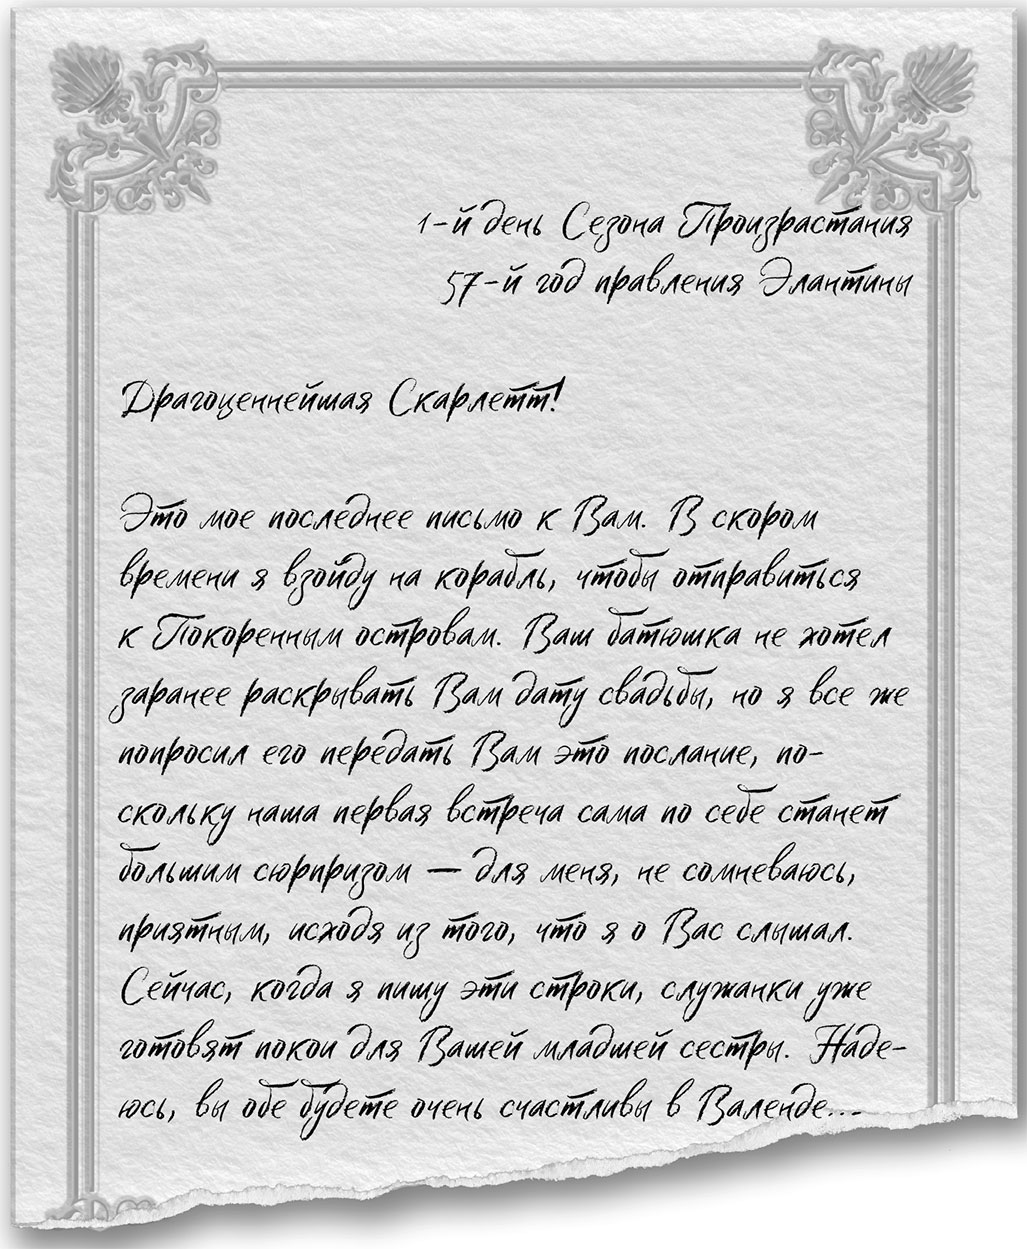 1-й день Сезона Произрастания
57-й год правления Элантины
Драгоценнейшая Скарлетт!
Это мое последнее письмо к Вам. В скором
времени я взойду на корабль, чтобы отправиться
к Покоренным островам. Ваш батюшка не хотел
заранее раскрывать Вам дату свадьбы, но я все же
попросил его передать Вам это послание, по-
скольку наша первая встреча сама по себе станет
большим сюрпризом — для меня, не сомневаюсь,
приятным, исходя из того, что я о Вас слышал.
Сейчас, когда я пишу эти строки, служанки уже
готовят покои для Вашей младшей сестры. Наде-
юсь, вы обе будете очень счастливы в Валенде...